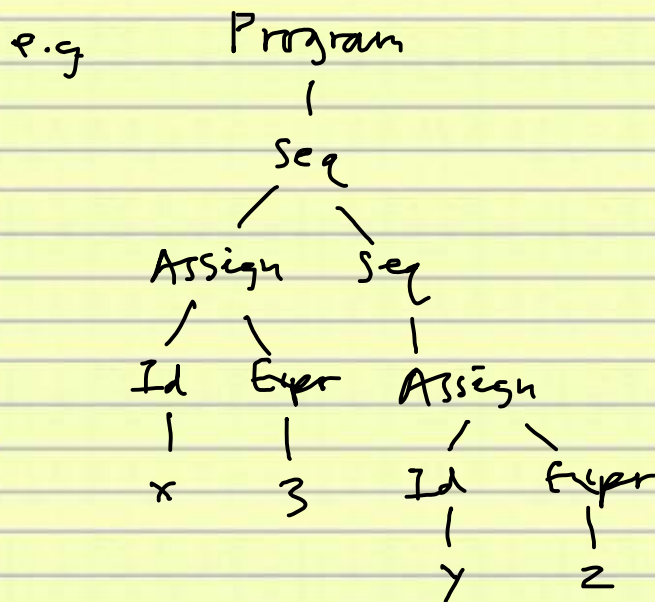 e.g Program
Seq
Assign Seq
Id Expr Assign
x 3 Id Expr
y 2